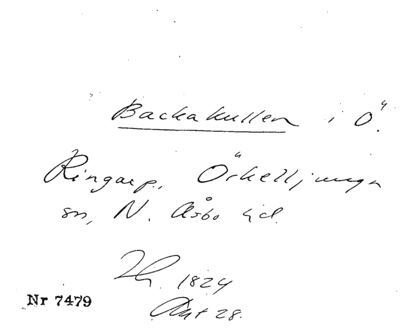 Backakullen i Ö.
Ringarp, Örkelljunga
sn, N. Åsbo hd.
1824
Nr 7479
Akt 28.